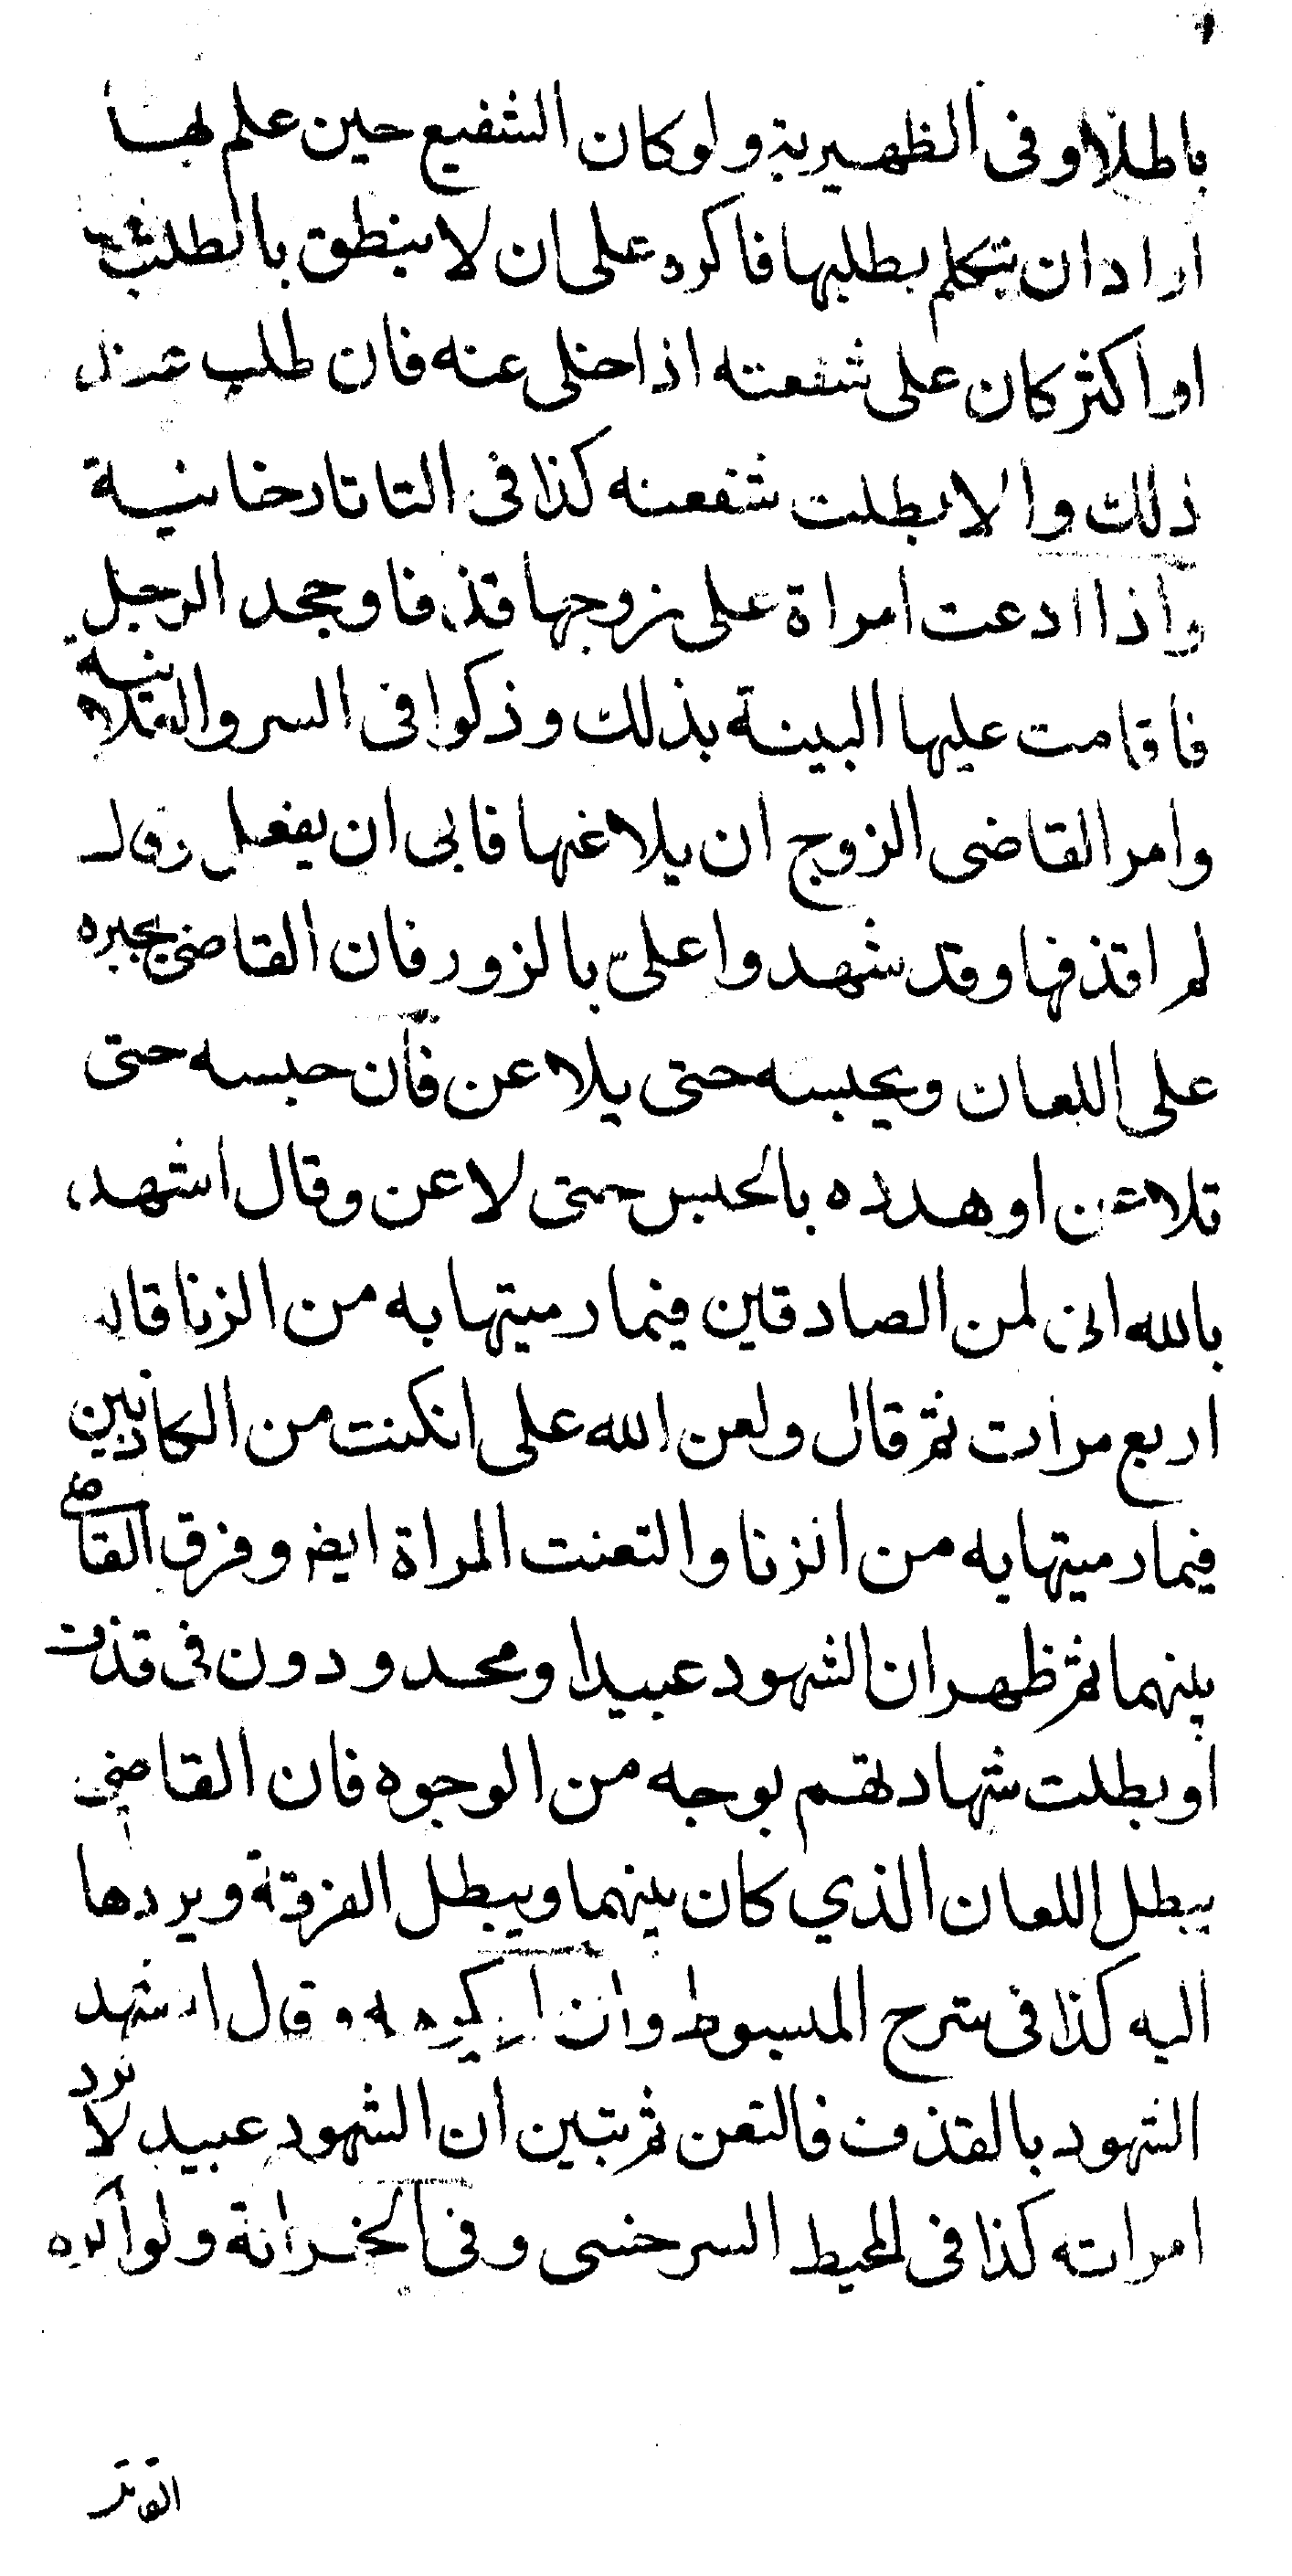 باطلا وفى الظهيرية ولو كان الشفيع حين علم بها
اراد ان يتكلم بطلبها فاكره على ان لا ينطق بالطلب
او اكثر كان على شفعته اذا خلى عنه فان طلب عند
ذلك والا بطلت شفعته كذا فى التاتارخانية
واذا ادعت امراة على زوجها قذفا وجحد الرجل
فاقامت عليها البينة بذلك وزكوا فى السر والعلانية
وامر القاضى الزوج ان يلاعنها فابى ان يفعل وقال
لم اقذفها وقد شهدوا على بالزور فان القاضى يجبره
على اللعان ويحبسه حتى يلاعن فان حبسه حتى
تلاعن او هدده بالحبس حتى لاعن وقال اشهد
بالله انى لمن الصادقين فيما رميتها به من الزنا قاله
اربع مرات ثم قال ولعن الله على ان كنت من الكاذبين
فيما رميتها به من الزنا والتعنت المراة ايض وفرق القاضى
بينهما ثم ظهر ان الشهود عبيدا ومحدودون فى قذف
او بطلت شهادتهم بوجه من الوجوه فان القاضى
يبطل اللعان الذي كان بينهما ويبطل الفرقة ويردها
اليه كذا فى شرح المبسوط وان وقال اشهد
الشهود بالقذف فالتعن ثم تبين ان الشهود عبيد لا ترد
امراته كذا فى المحيط السرخسى وفى الخزانة ولو اكره